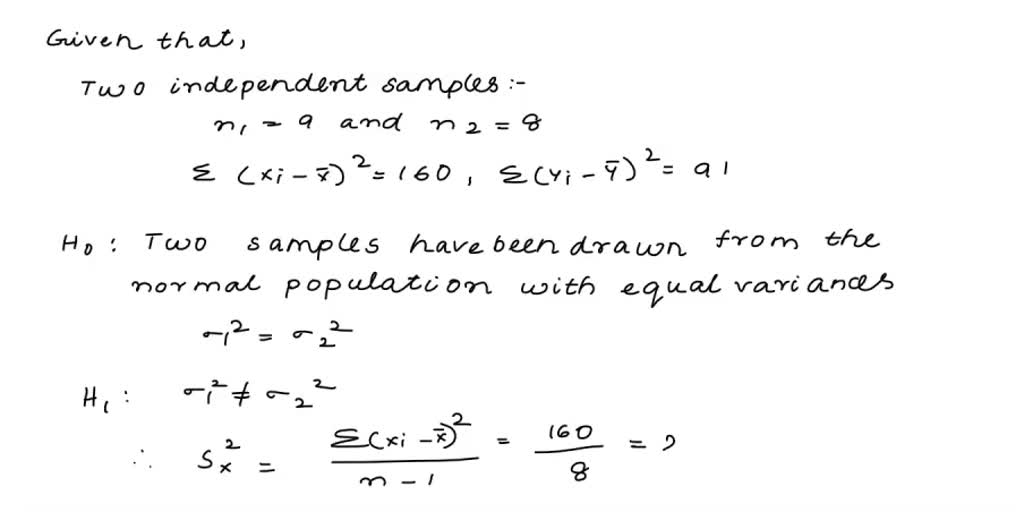 Given that,
Two independent samples :-
n₁ = 9 and n₂ = 8
Σ (xi - x̄)² = 160, Σ(yi - ȳ)² = 91
H₀ : Two samples have been drawn from the
normal population with equal variances
σ₁² = σ₂²
H₁ : σ₁² ≠ σ₂²
∴ Sₓ² = Σ(xi - x̄)² / n - 1 = 160 / 8 =